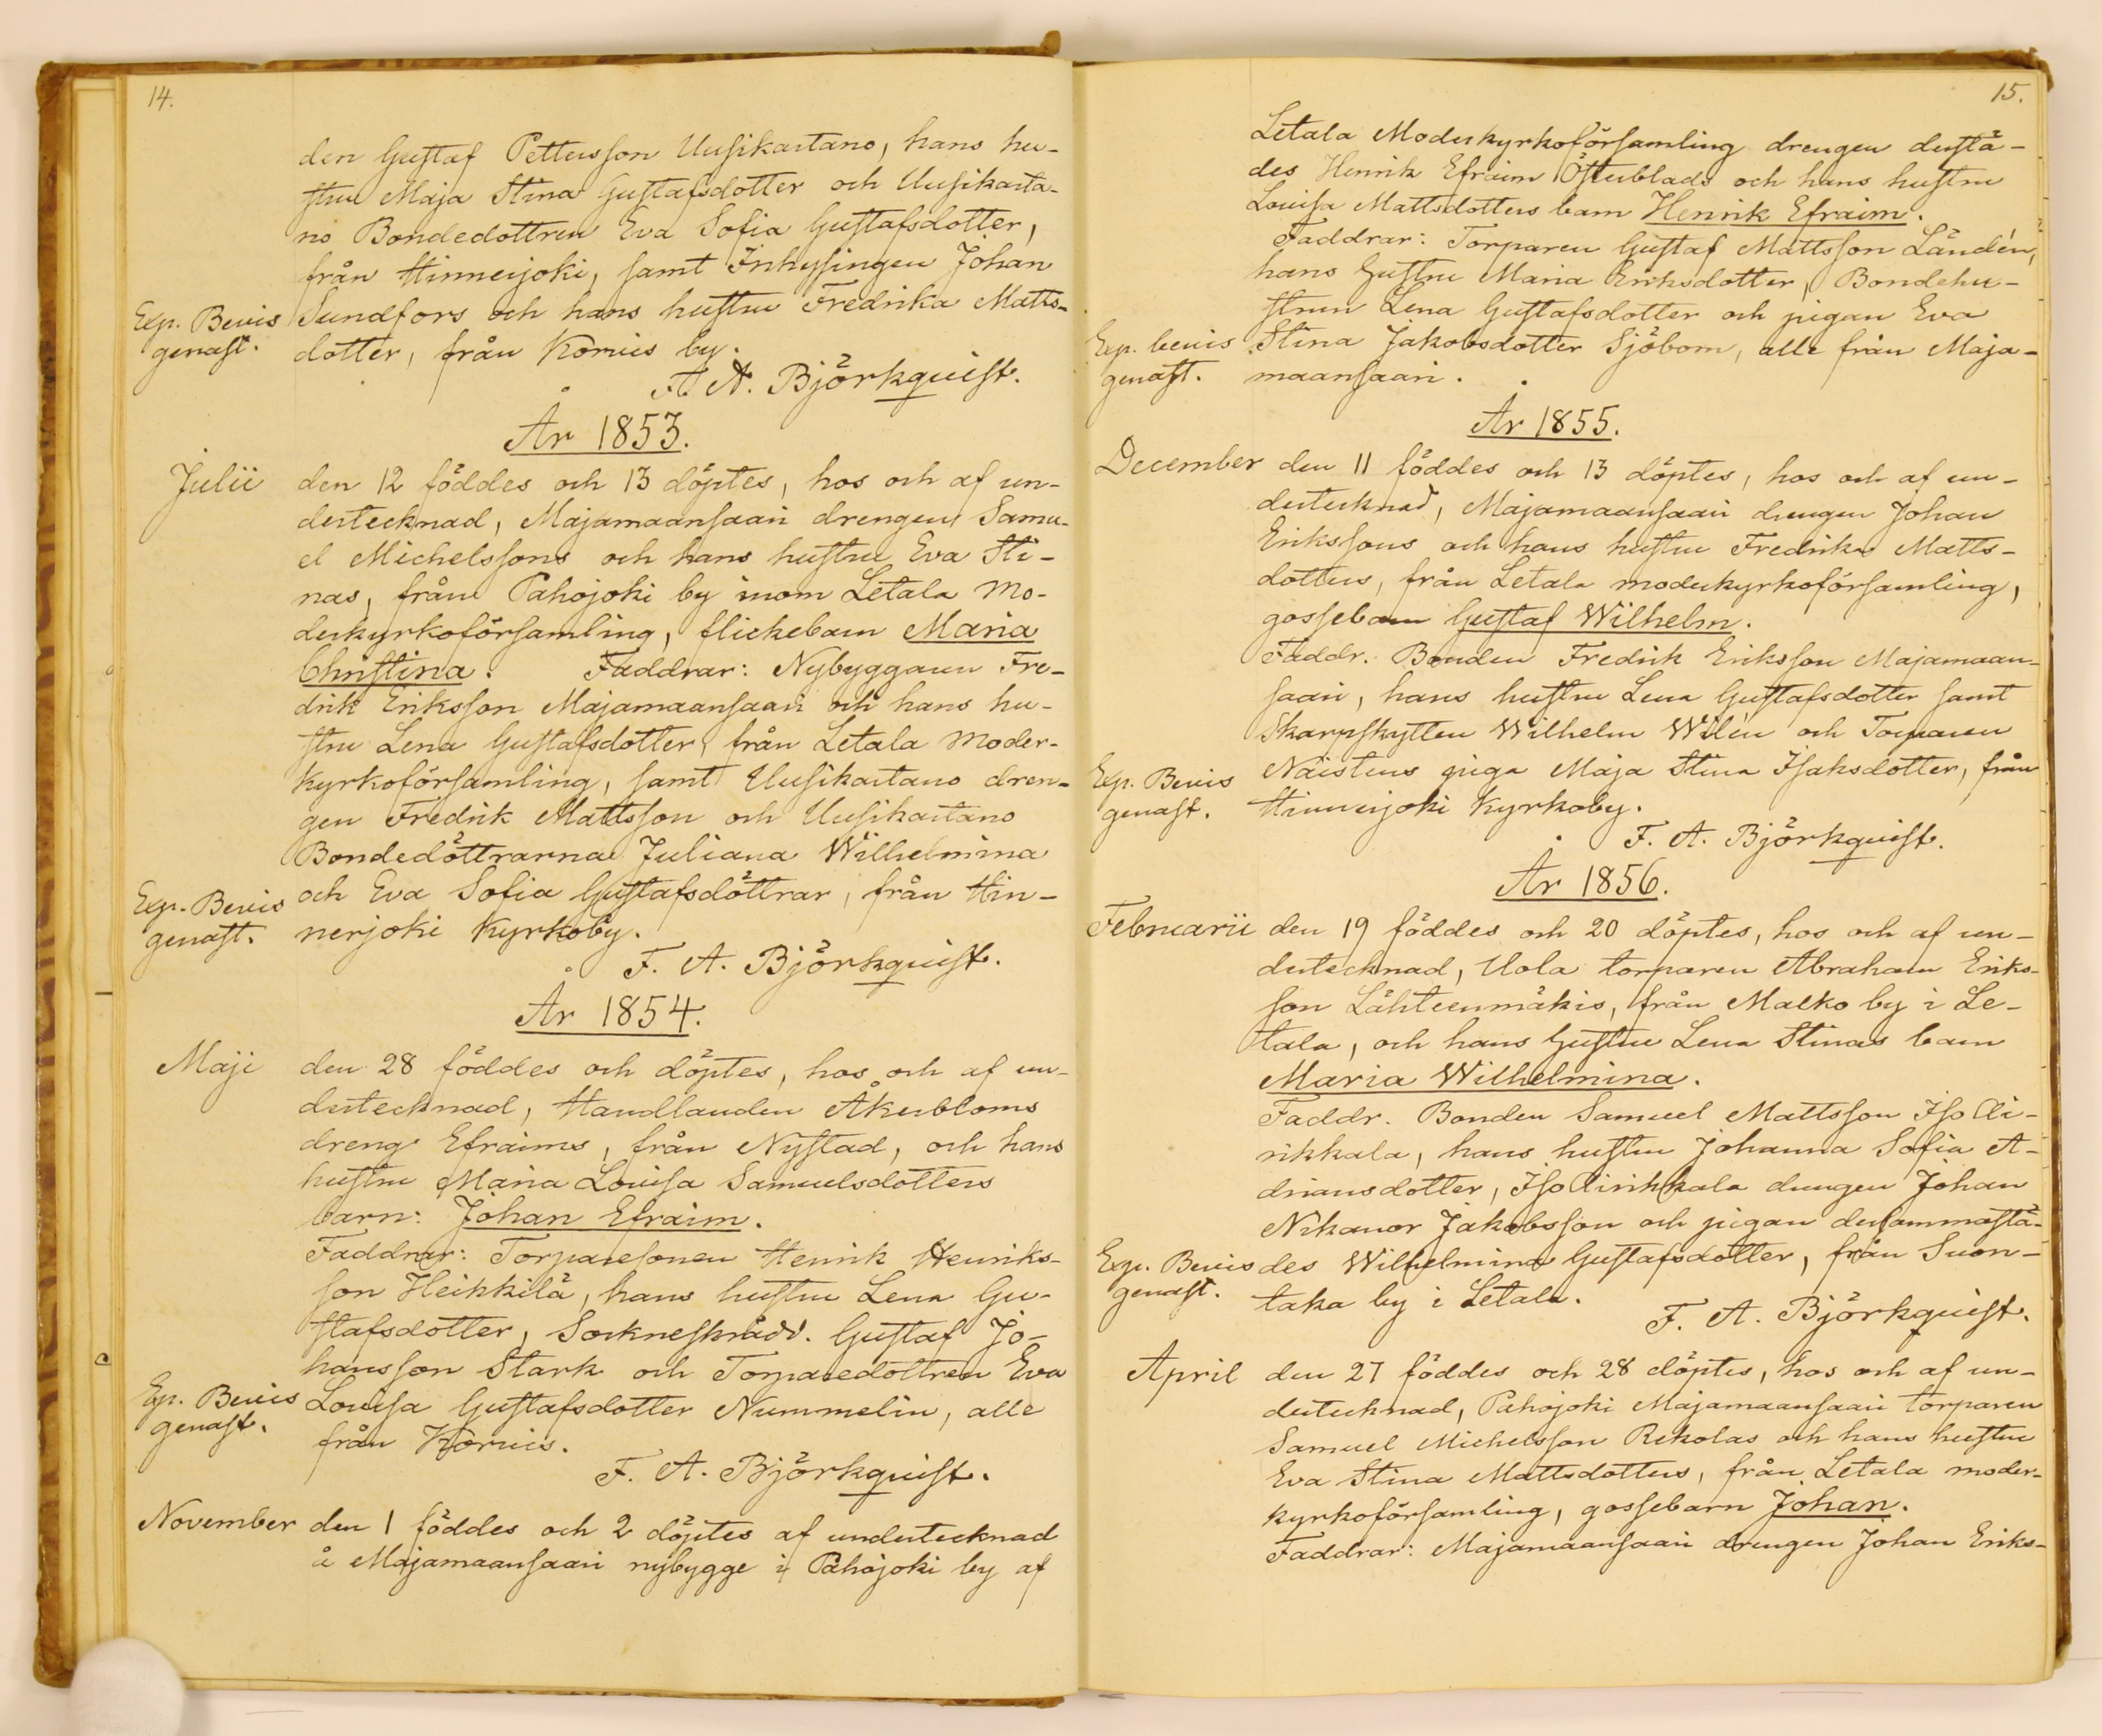 14.
den Gustaf Pettersson Uusikartano, hans hu-
stru Maja Stina Gustafsdotter och Uusikarta-
no Bondedottren Eva Sofia Gustafsdotter,
från Hinnerjoki, samt Inhysingen Johan
Exp. Bevis Sundfors och hans hustru Fredrika Matts-
genast. dotter, från Korvis by.
F. A. Björkquist.
År 1853.
Julii den 12 föddes och 13 döptes, hos och af un-
dertecknad, Majamaansaari drengen Samu-
el Michelssons och hans hustru Eva Sti-
nas, från Pahojoki by inom Letala Mo-
derkyrkoförsamling, flickebarn Maria
Christina. Faddrar: Nybyggaren Fre-
drik Eriksson Majamaansaari och hans hu-
stru Lena Gustafsdotter, från Letala Moder-
kyrkoförsamling, samt Uusikartano dren-
gen Fredrik Mattsson och Uusikartano
Bondedöttrarna Juliana Wilhelmina
Exp. Bevis och Eva Sofia Gustafsdöttrar, från Hin-
genast. nerjoki Kyrkoby.
F. A. Björkquist.
År 1854.
Maji den 28 föddes och döptes, hos och af un-
dertecknad, Handlanden Åkerbloms
dreng Efraims, från Nystad, och hans
hustru Maria Lovisa Samuelsdotters
barn: Johan Efraim.
Faddrar: Torparesonen Henrik Henriks-
son Heikkilä, hans hustru Lena Gu-
stafsdotter, Sockneskrädd. Gustaf Jo-
hansson Stark och Torparedottren Eva
Exp. Bevis Lovisa Gustafsdotter Nummelin, alle
genast. från Korvis.
F. A. Björkquist.
November den 1 föddes och 2 döptes af undertecknad
å Majamaansaari nybygge i Pahojoki by af
15.
Letala Moderkyrkoförsamling drengen derstä-
des Henrik Efraim Österblads och hans hustru
Lovisa Mattsdotters barn Henrik Efraim.
Faddrar: Torparen Gustaf Mattsson Ländén,
hans Hustru Maria Eriksdotter, Bondehu-
strun Lena Gustafsdotter och pigan Eva
Exp. bevis Stina Jakobsdotter Sjöbom, alle från Maja-
genast. maansaari.
År 1855.
December den 11 föddes och 13 döptes, hos och af un-
dertecknad, Majamaansaari drengen Johan
Erikssons och hans hustru Fredrika Matts-
dotters, från Letala moderkyrkoförsamling,
gossebarn Gustaf Wilhelm.
Faddr. Bonden Fredrik Eriksson Majamaan-
saari, hans hustru Lena Gustafsdotter samt
Skarpskytten Wilhelm Wilén och Torparen
Exp. Bevis Näistens piga Maja Stina Isaksdotter, från
genast. Hinnerjoki Kyrkoby.
F. A. Björkquist.
År 1856.
Februarii den 19 föddes och 20 döptes, hos och af un-
dertecknad, Uola torparen Abraham Eriks-
son Lähteenmäkis, från Malko by i Le-
tala, och hans Hustru Lena Stinas barn
Maria Wilhelmina.
Faddr. Bonden Samuel Mattsson Iso Ai-
rikkala, hans hustru Johanna Sofia A-
driansdotter, Iso Airikkala drengen Johan
Nikanor Jakobsson och pigan dersammastä-
Exp. Bevis des Wilhelmina Gustafsdotter, från Suon-
genast. taka by i Letala.
F. A. Björkquist.
April den 27 föddes och 28 döptes, hos och af un-
dertecknad, Pahojoki Majamaansaari torparen
Samuel Michelsson Rekolas och hans hustru
Eva Stina Mattsdotters, från Letala moder-
kyrkoförsamling, gossebarn Johan.
Faddrar: Majamaansaari drengen Johan Eriks-